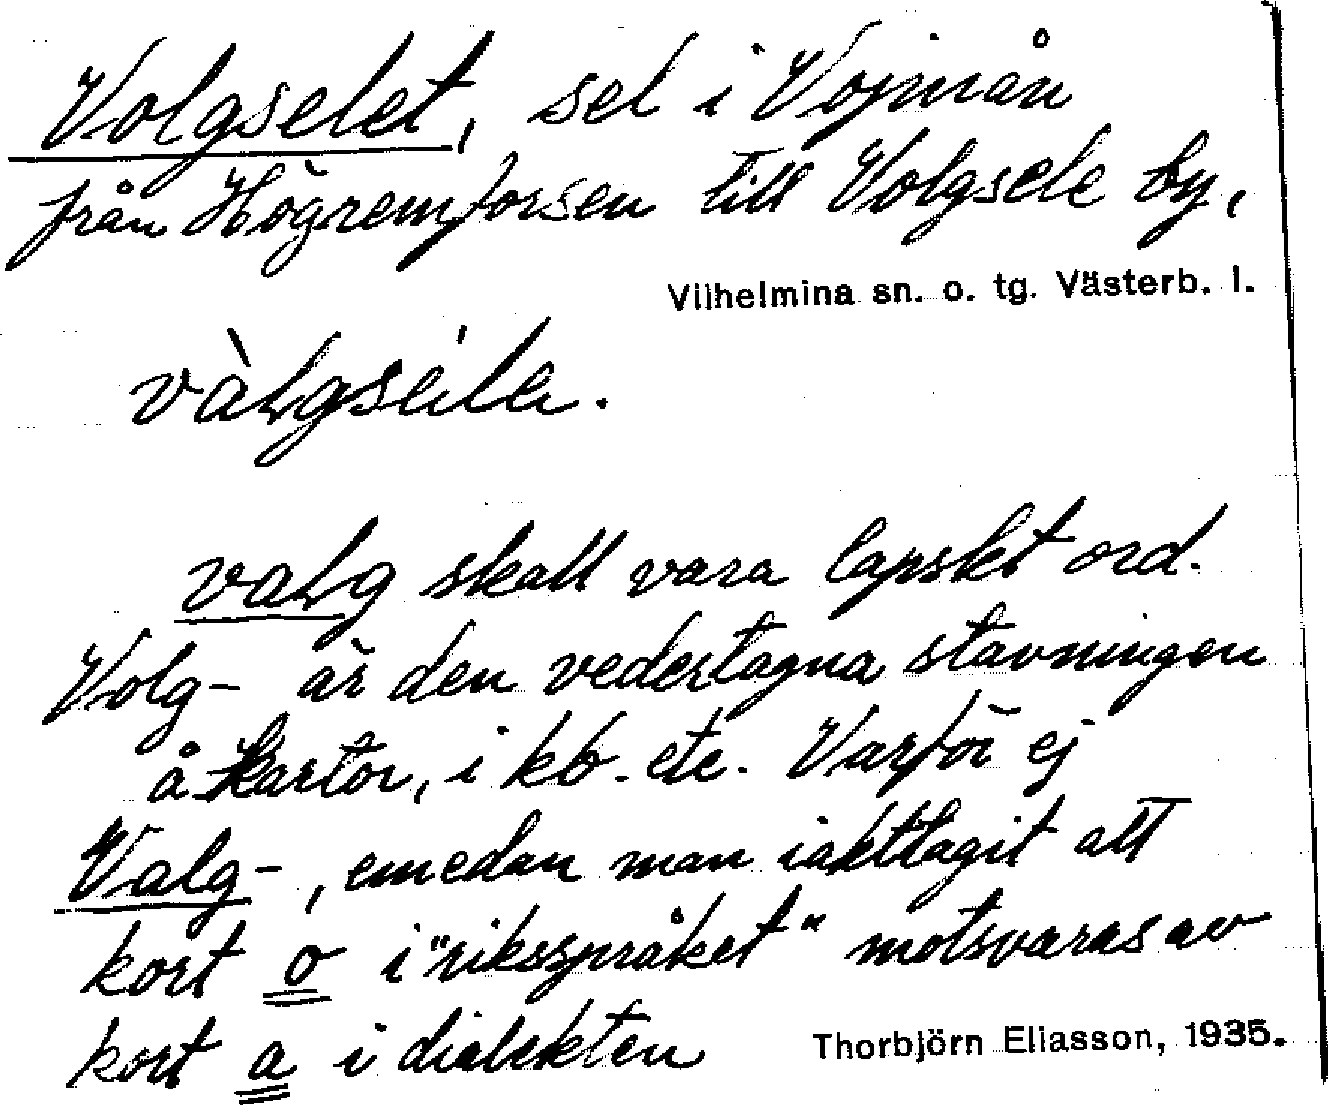 Volgselet, sel i Vojmån
från Högremforsen till Volgsele by,
Vilhelmina sn. o. tg. Västerb. l.
valg skall vara lapskt ord.
Volg- är den vedertagna stavningen
å kartor, i kb. etc. Varför ej
Valg-, emedan man iakttagit att
kort o i "riksspråket" motsvaras av
kort a i dialekten
Thorbjörn Eliasson, 1935.